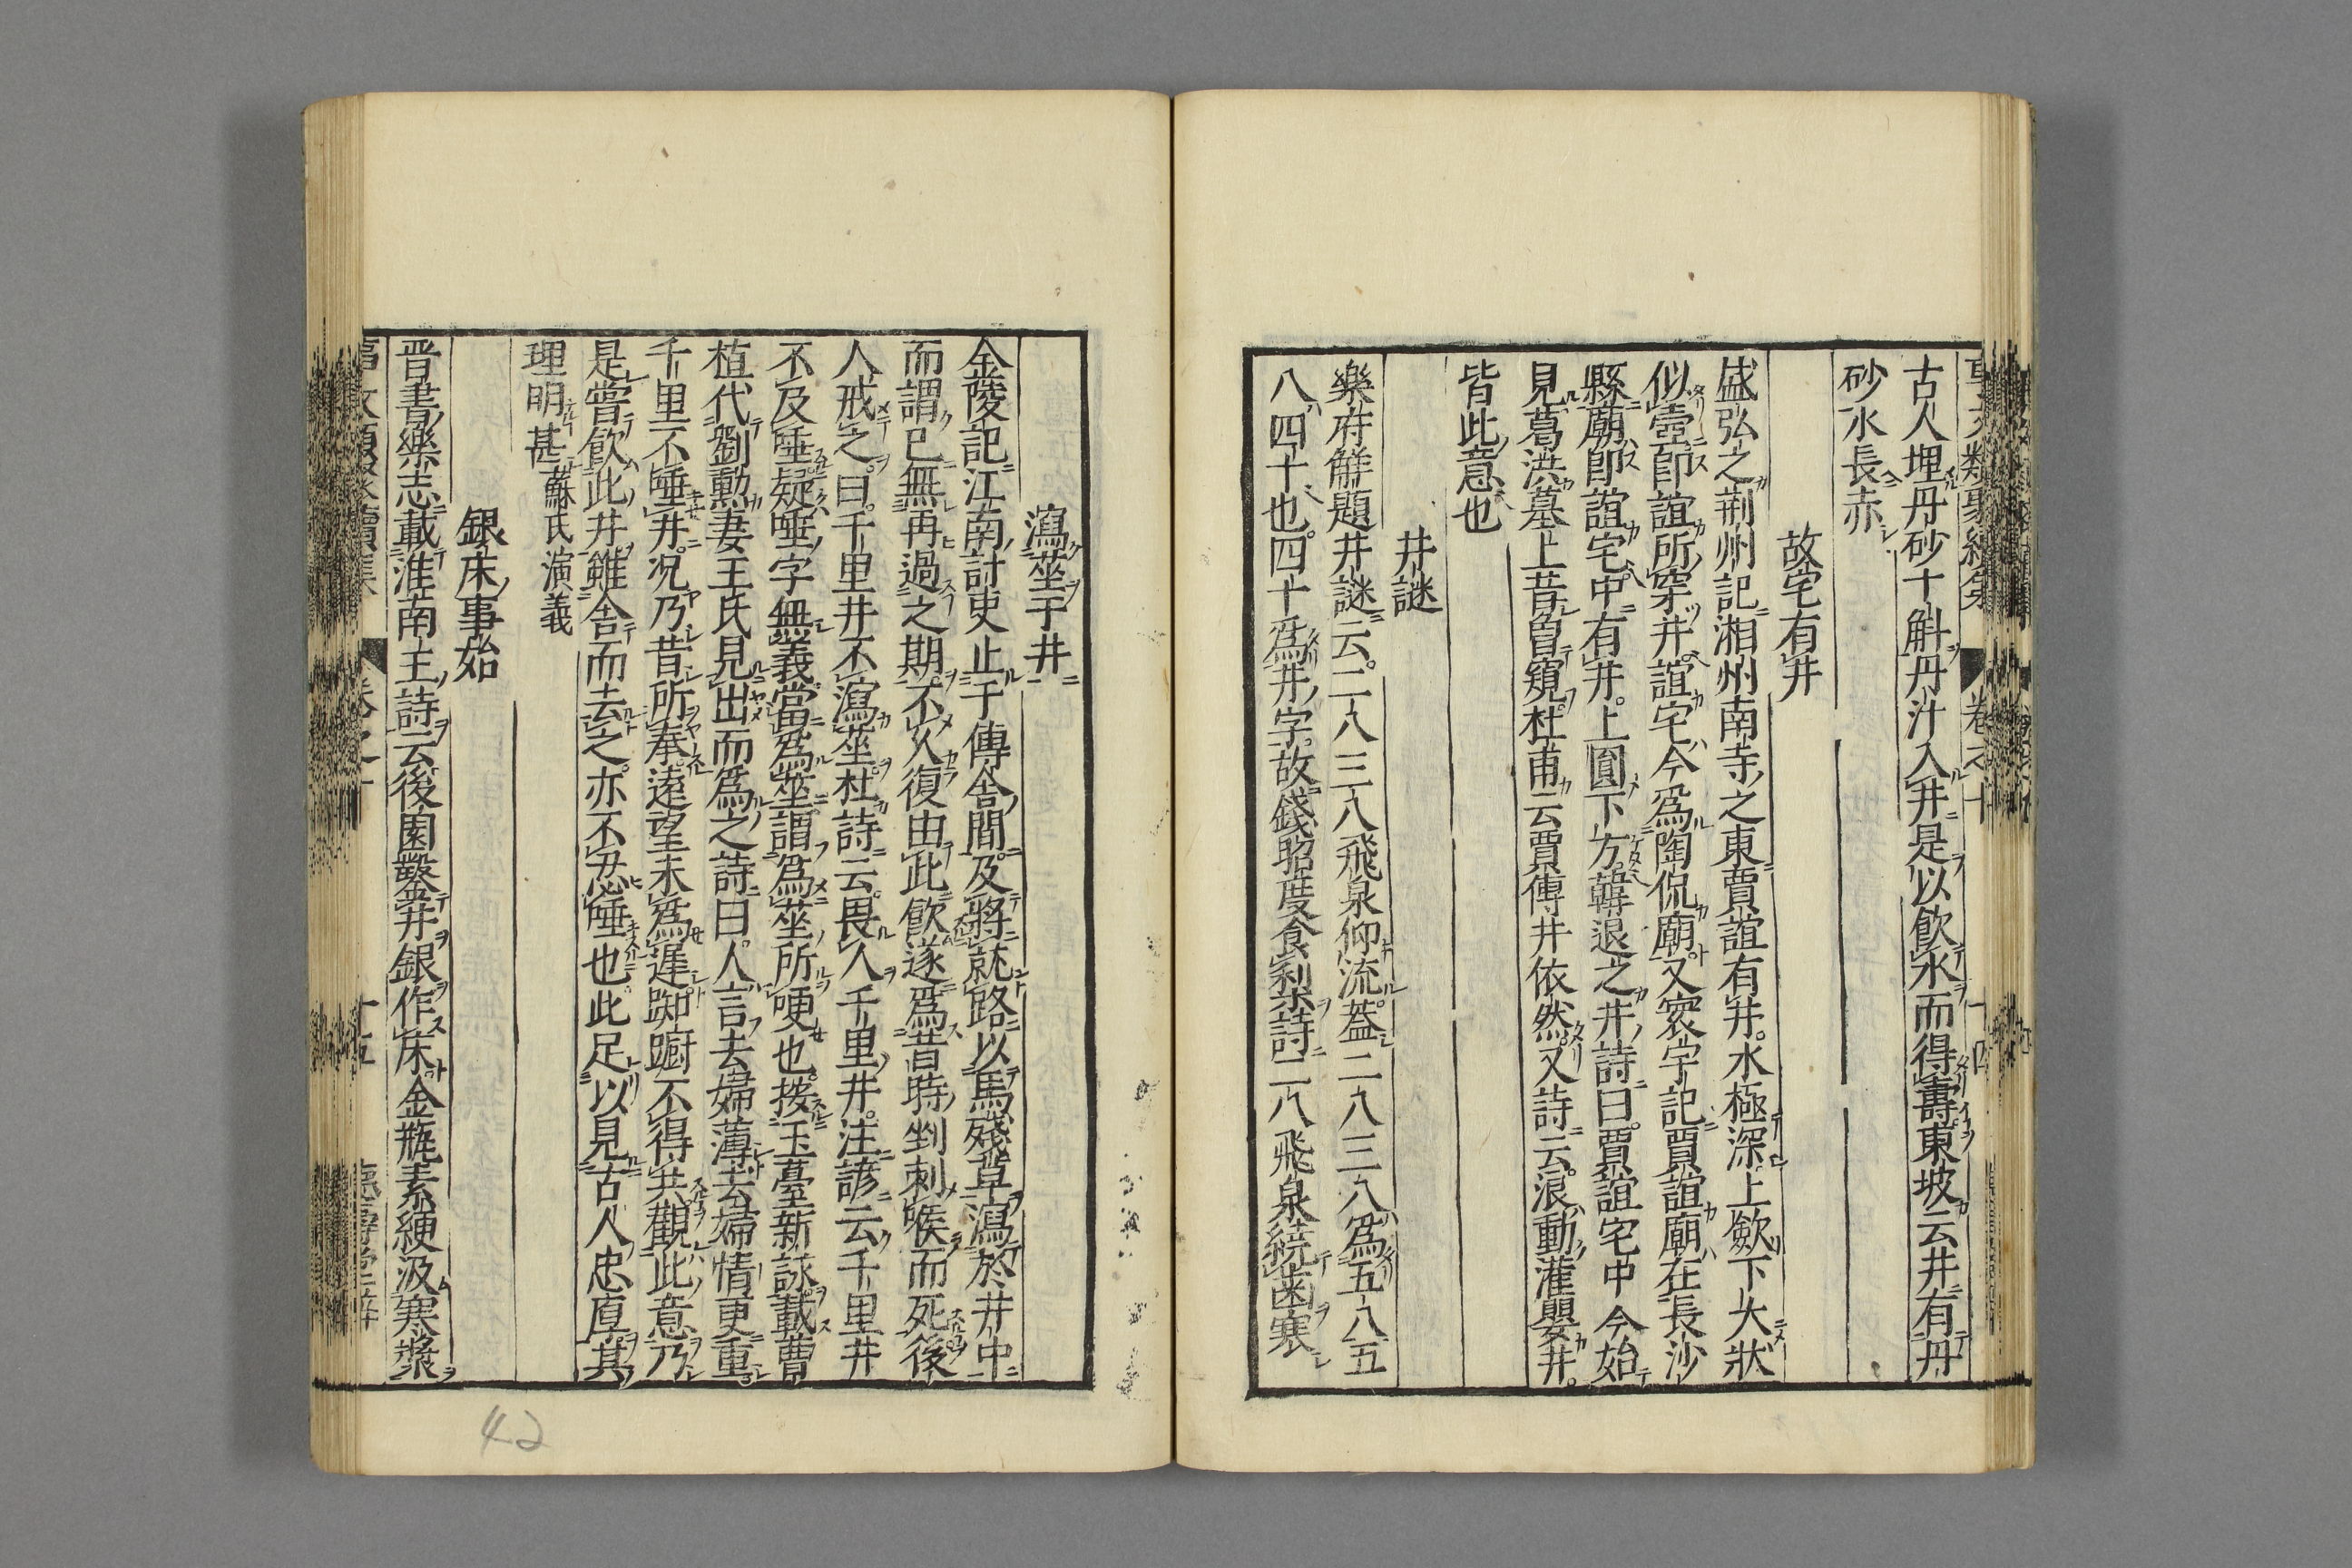 古人埋丹砂十斛丹汁入井是以飲水而得壽東坡云井有丹
砂水長赤
故宅有井
盛弘之荊州記湘州南寺之東賈誼有井水極深上斂下大狀
似壺即誼所穿井誼宅今爲陶侃廟又寰宇記賈誼廟在長沙
縣廟即誼宅中有井上圓下方韓退之井詩曰賈誼宅中今始
見葛洪墓上昔曾窺杜甫云賈傅井依然又詩云浪動灌嬰井
皆此意也
井謎
樂府解題井謎云二八三八飛泉仰流蓋二八三八爲五八五
八四十也四十爲井字故錢昭度食梨詩二八飛泉繞齒寒
瀉莝于井
金陵記江南計吏止于傳舍間及將就路以馬殘草瀉於井中
而謂已無再過之期不久復由此飲遂爲昔時剉刺喉而死後
人戒之曰千里井不瀉莝杜詩云畏人千里井注諺云千里井
不及唾疑唾字無義當爲莝謂爲莝所哽也按玉臺新詠載曹
植代劉勳妻王氏見出而爲之詩曰人言去婦薄去婦情更重
千里不唾井况乃昔所奉遠望未爲遲踟躕不得共觀此意乃
是嘗飲此井雖舍而去之亦不忍唾也此足以見古人忠厚其
理明甚蘇氏演義
銀床事始
晋書樂志載淮南王詩云後園鑿井銀作床金瓶素綆汲寒漿
卷之十
十五